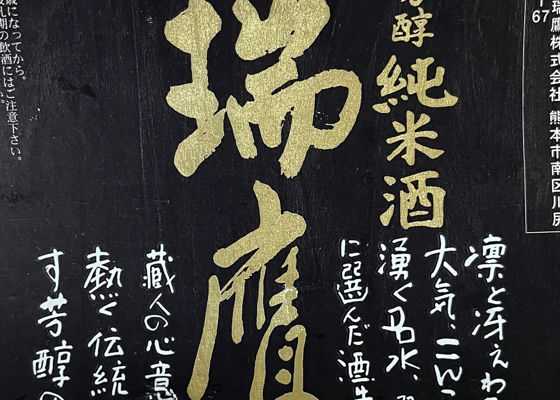 瑞鷹株式会社 熊本市南区川尻
67
醇 純米酒
瑞鷹
凛と冴えわ
大気、こんこ
湧く名水、
に選んだ酒
蔵人の心意
熱く伝統
す芳醇の
歳になってから。
乳期の飲酒にはご注意下さい。